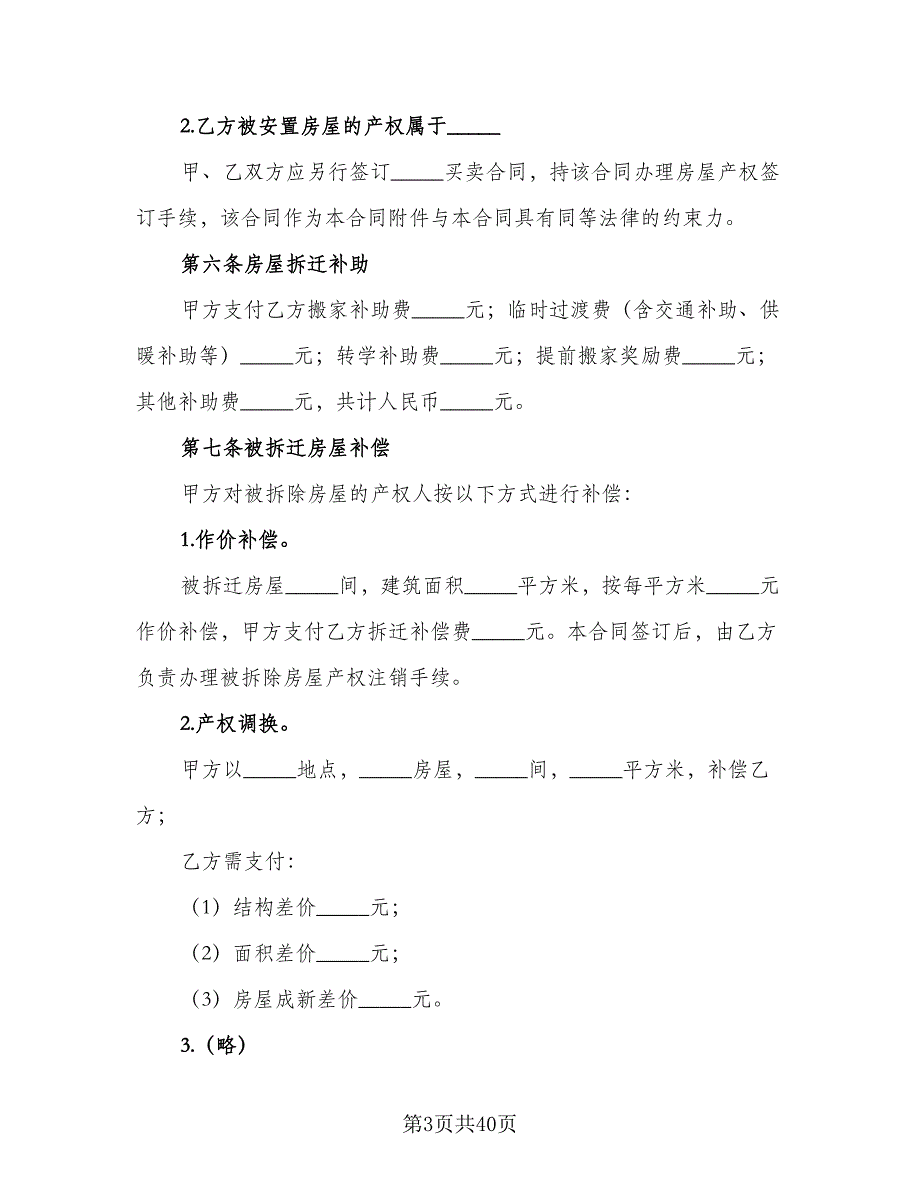 2.乙方被安置房屋的产权属于_____
甲、乙双方应另行签订_____买卖合同，持该合同办理房屋产权签
订手续，该合同作为本合同附件与本合同具有同等法律的约束力。
第六条房屋拆迁补助
甲方支付乙方搬家补助费_____元；临时过渡费（含交通补助、供
暖补助等）_____元；转学补助费_____元；提前搬家奖励费_____元；
其他补助费_____元，共计人民币_____元。
第七条被拆迁房屋补偿
甲方对被拆除房屋的产权人按以下方式进行补偿：
1.作价补偿。
被拆迁房屋_____间，建筑面积_____平方米，按每平方米_____元
作价补偿，甲方支付乙方拆迁补偿费_____元。本合同签订后，由乙方
负责办理被拆除房屋产权注销手续。
2.产权调换。
甲方以_____地点，_____房屋，_____间，_____平方米，补偿乙
方；
乙方需支付：
（1）结构差价_____元；
（2）面积差价_____元；
（3）房屋成新差价_____元。
3.（略）
第3页共40页